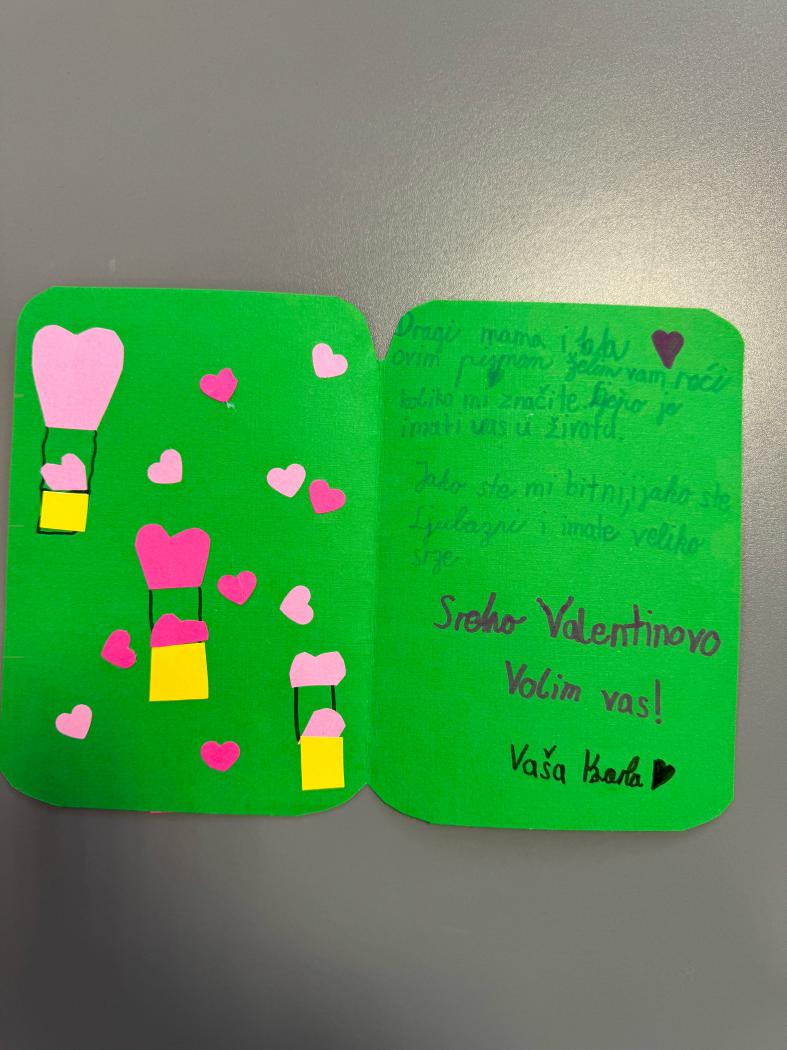 Dragi mama i tata
ovim pismom želim vam reći
koliko mi značite. Lijepo je
imati vas u životu.
Jako ste mi bitni, jako ste
Ljubazni i imate veliko
srze
Sretno Valentinovo
Volim vas!
Vaša Karla